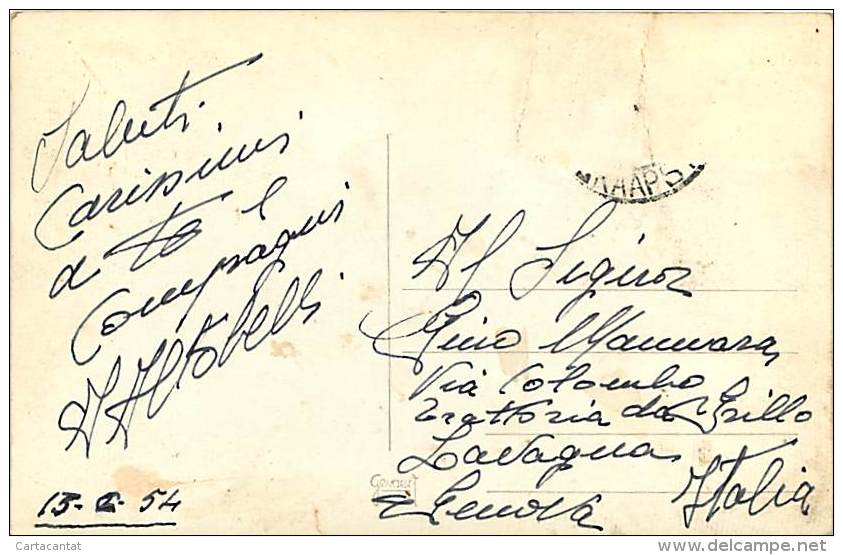 Saluti
Carissimi
a te e
Compagni
15-6-54
Al Signor
Gino Mannara
Via Colombo
trattoria da Grillo
Lavagna
Genova Italia
Gevaert
Cartacantat
www.delcampe.net